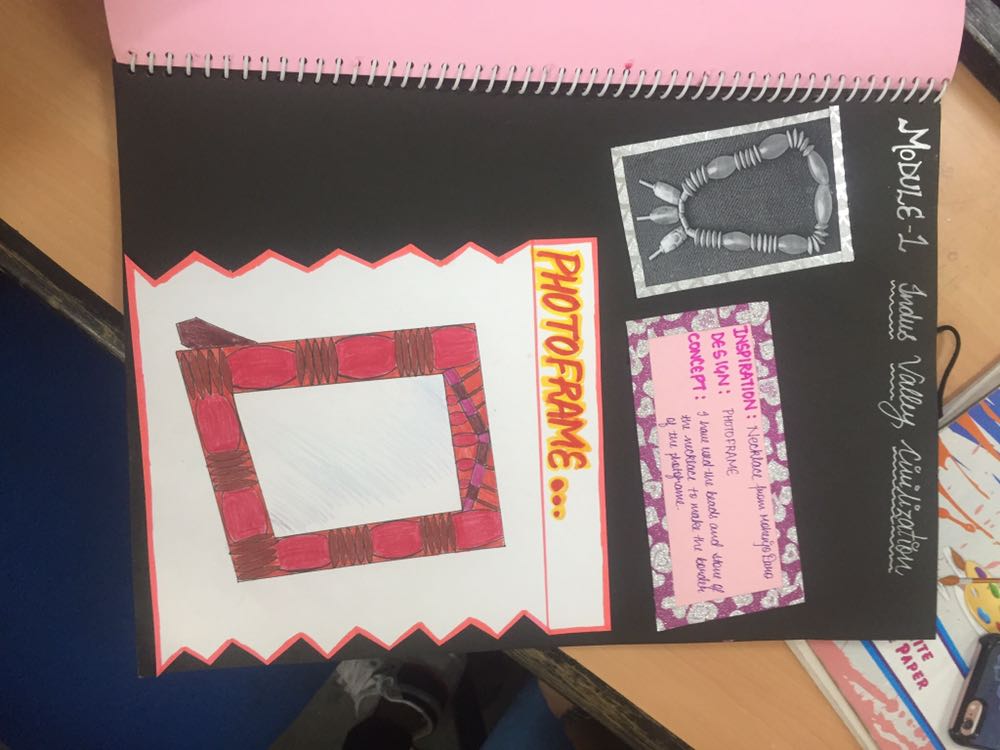 MODULE-1 Indus Valley Civilization
INSPIRATION: Necklace from Mohenjo Daro
DESIGN: PHOTOFRAME
CONCEPT: I have used the beads and stone of
the necklace to make the border
of the photoframe.
PHOTOFRAME...
PAPER